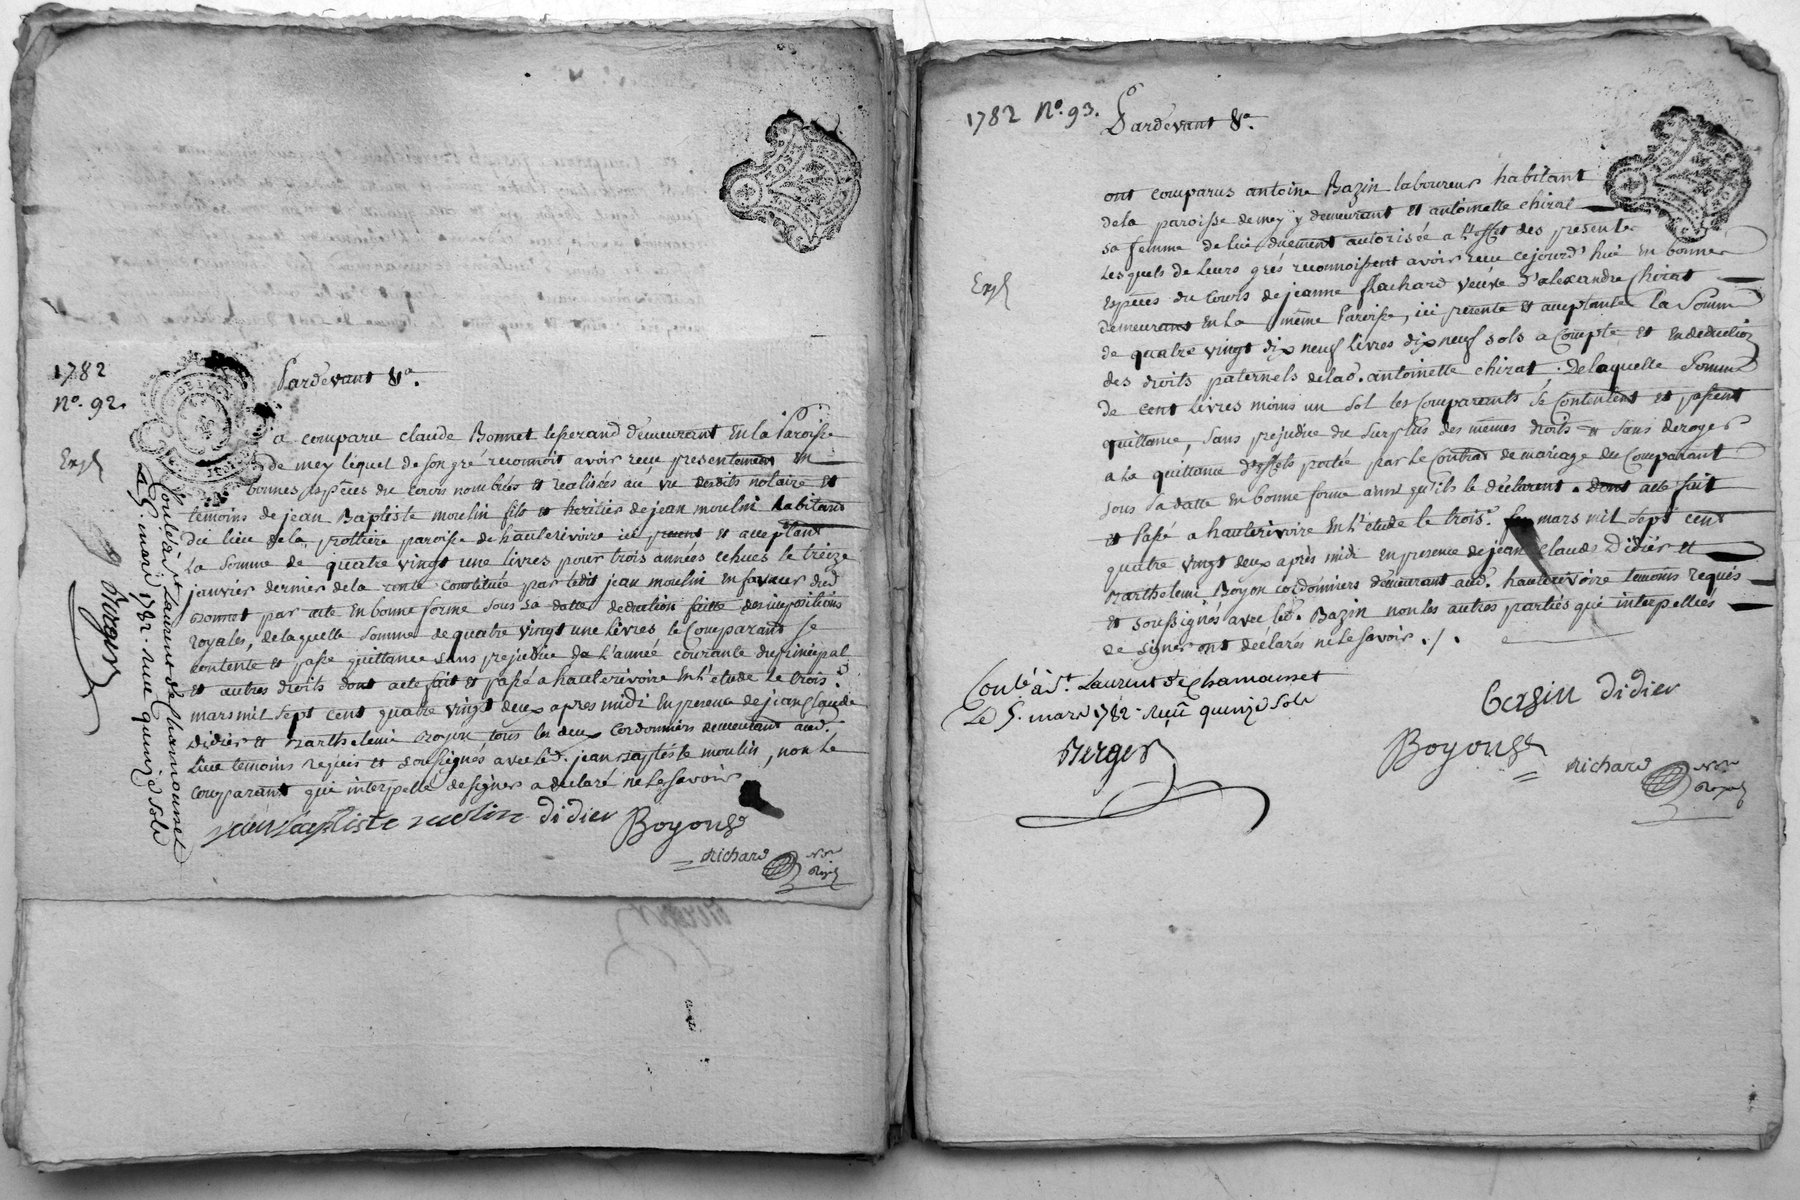 1782
N.o 92.
Pardevant &a.
a comparu claude Bonnet tisserand demeurant en la Paroisse
de mey lequel de son gré reconnoit avoir recu presentement en
bonnes especes du cours nombrées et realisées au vu desdits notaire et
temoins de jean Baptiste moulin fils et heritier de jean moulin habitant
du lieu de la frottiere paroisse de hauterivoire ici present et acceptant
la somme de quatre vingt une livres pour trois années echues le treize
janvier dernier de la rente constituée par ledit jean moulin en faveur dud.
Bonnet par acte en bonne forme sous sa datte deduction faitte des impositions
royales, de laquelle somme de quatre vingt une livres le comparant se
contente et passe quittance sans prejudice de l'année courante du principal
et autres droits dont acte fait et passé a hauterivoire en l'etude le trois.
mars mil sept cent quatre vingt deux apres midi en presence de jean claude
Didier et Barthelemi Boyon tous les deux cordonniers demeurant aud.
lieu temoins requis et soussignés avec led. jean Baptiste moulin, non le
comparant qui interpellé de signer a declaré ne le savoir
jean baptiste moulin didier Boyon
Richard
Nre
Royal
Expé
Conlé à St Laurent de Chamousset
Le 5. mars 1782. Recu quinze Sols
Berger
1782 N.o 93.
Pardevant &a.
ont comparus antoine Bazin laboureur habitant
de la paroisse de mey y demeurant et antoinette chirat
sa femme de lui duement autorisée a l'effet des presentes
lesquels de leurs grés reconnoissent avoir recu cejourd'hui en bonnes
Especes du cours de jeanne flachard veuve d'alexandre Chirat
demeurant en la même Paroisse, ici presente et acceptante la Somme
de quatre vingt dix neuf livres dix neuf sols a compte et en deduction
des droits paternels de lad. antoinette chirat. De laquelle Somme
de cent livres moins un sol les comparants se contentent et passent
quittance, sans prejudice du surplus des mêmes droits et sans deroger
a la quittance d'effets portée par le contrat de mariage des Comparant
sous sa datte en bonne forme ainsi qu'ils le déclarent. Dont acte fait
et Passé a hauterivoire en l'etude le trois.e mars mil Sept cent
quatre vingt deux après midi en presence de jean Claude Didier et
Barthelemi Boyon cordonniers demeurant aud. hauterivoire temoins requis
et soussignés avec led. Bazin non les autres parties qui interpellées
de signer ont déclarés ne le savoir ./.
Expé
Conlé à St. Laurent de Chamousset
Le 5. mars 1782. Recu quinze Sols
Berger
didier
Boyon
Richard
Nre
Royal